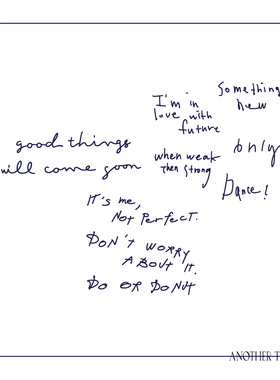 Something
new
I'm in
love with
future
good things
will come soon
only
when weak
then strong
Dance!
It's me,
Not Perfect.
DON'T WORRY
ABOUT IT.
DO OR DONUT
ANOTHER T